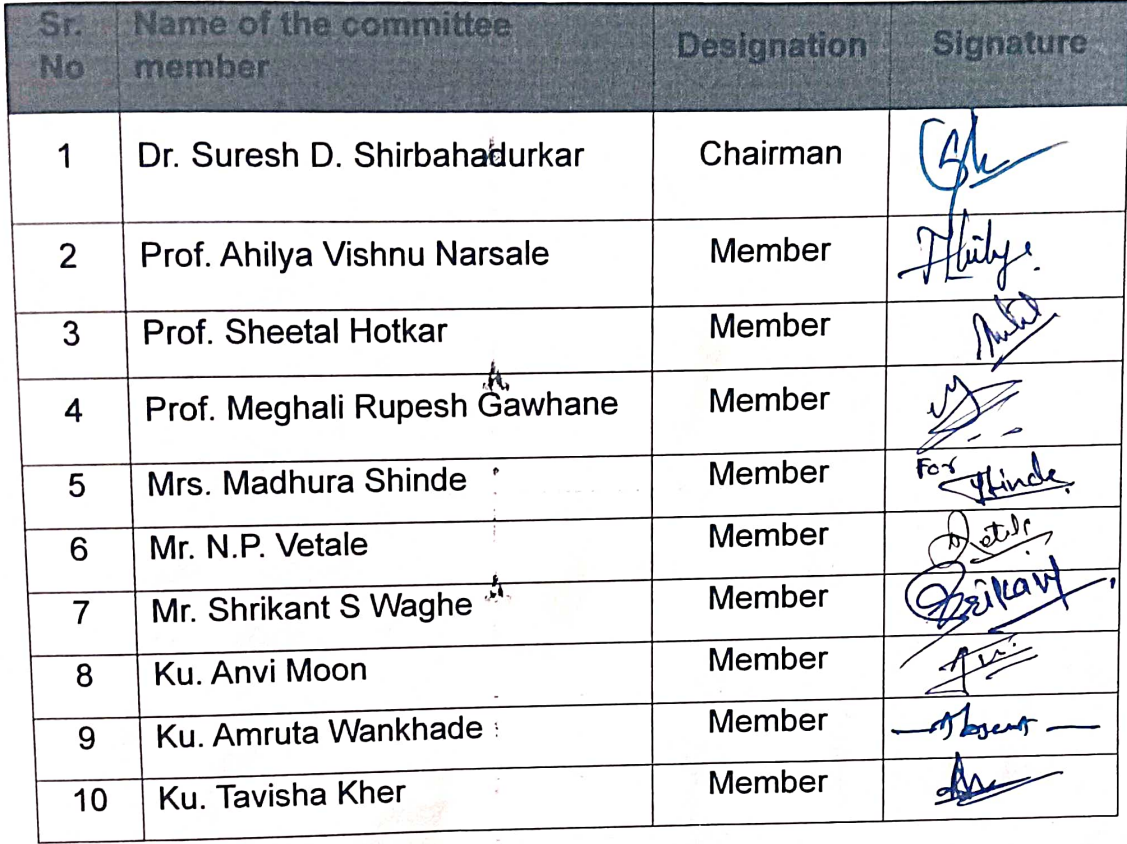 Sr. No Name of the committee member Designation Signature
1 Dr. Suresh D. Shirbahadurkar Chairman
2 Prof. Ahilya Vishnu Narsale Member
3 Prof. Sheetal Hotkar Member
4 Prof. Meghali Rupesh Gawhane Member
5 Mrs. Madhura Shinde Member For Shinde
6 Mr. N.P. Vetale Member
7 Mr. Shrikant S Waghe Member Shrikant
8 Ku. Anvi Moon Member
9 Ku. Amruta Wankhade Member — Absent —
10 Ku. Tavisha Kher Member